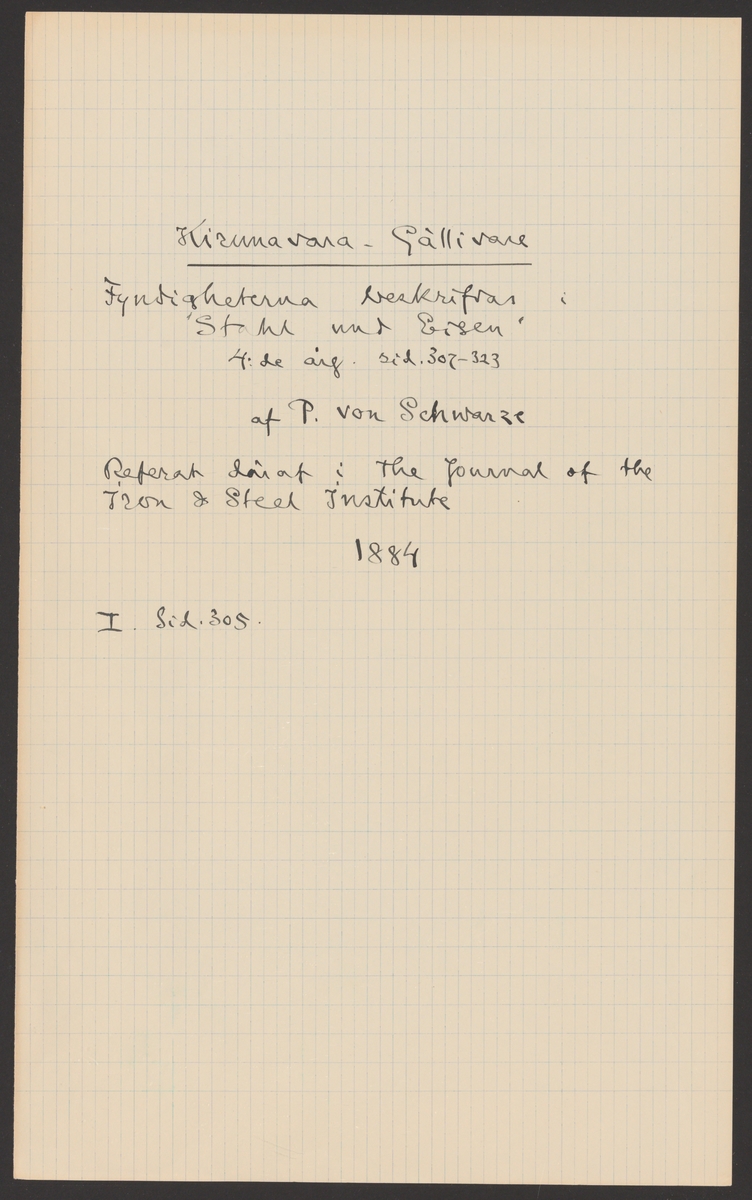 Kirunavara - Gällivare
Fyndigheterna beskrifvas i
'Stahl und Eisen'
4:de årg. sid. 307-323
af P. von Schwarze
Referat däraf i The Journal of the
Iron & Steel Institute
1884
I. Sid. 305.